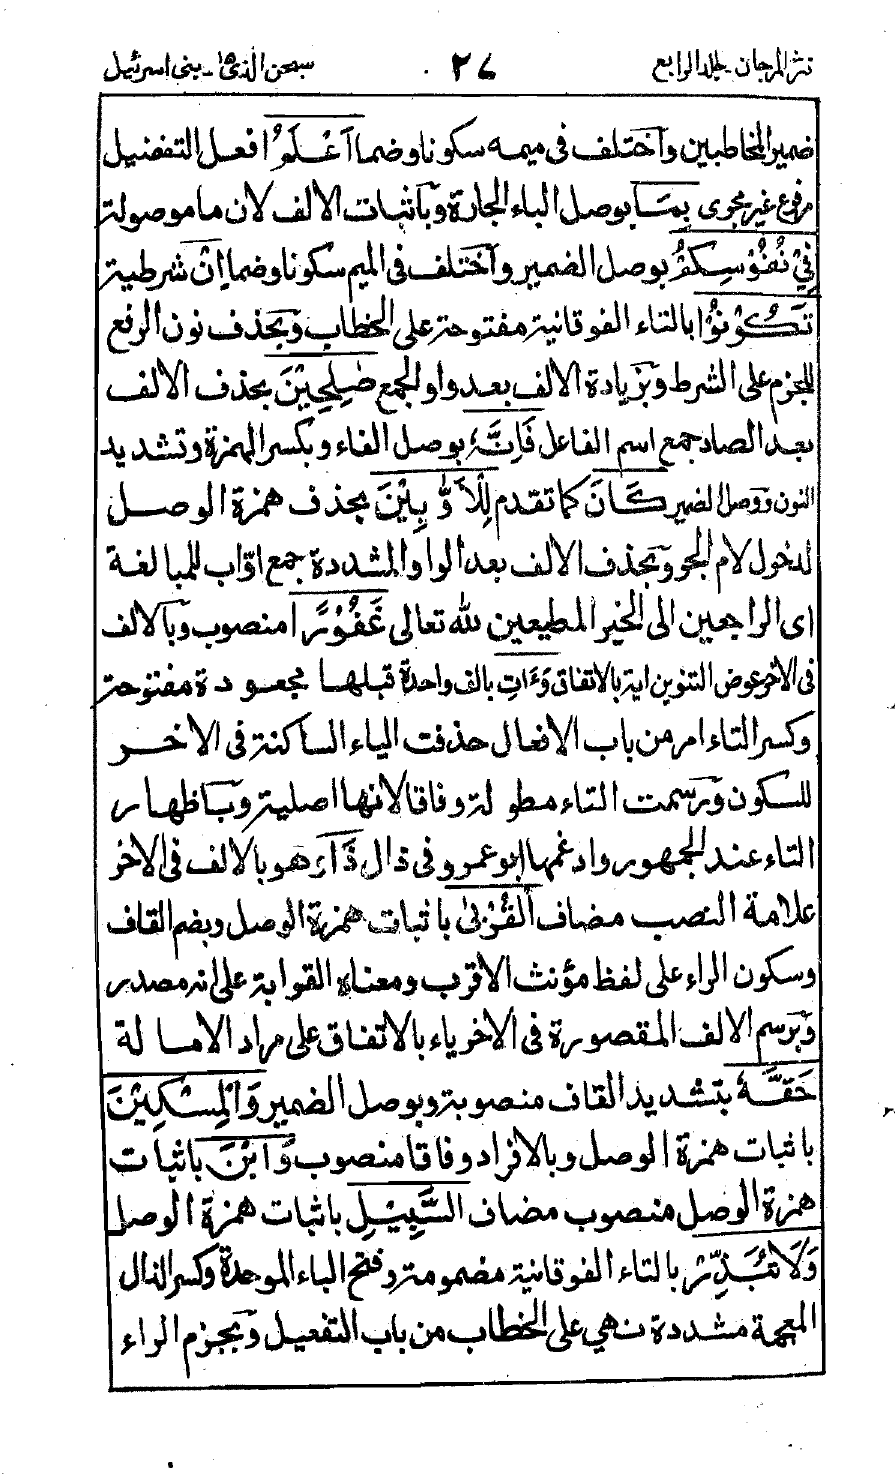 نثر المرجان - جلد الرابع
٢٧
سبحن الذى ١٥ - بنى اسرئيل
ضمير المخاطبين واختلف فى ميمه سكونا وضما اَعْلَمُ افعل التفضيل
مرفوع غير مجرى بِمَا بوصل الباء الجارة وبآثبات الالف لان ما موصولة
فِيْ نُفُوْسِكُمْ بوصل الضمير واختلف فى الميم سكونا وضما اِنْ شرطية
تَكُوْنُوْا بالتاء الفوقانية مفتوحة على الخطاب وبحذف نون الرفع
للجزم على الشرط وبزيادة الالف بعد واو الجمع صٰلِحِيْنَ بحذف الالف
بعد الصاد جمع اسم الفاعل فَاِنَّهٗ بوصل الفاء وبكسر الهمزة وتشديد
النون ووصل الضمير كَانَ كما تقدم لِلْاَوّٰبِيْنَ بحذف همزة الوصل
لدخول لام الجر وبحذف الالف بعد الواو المشددة جمع اوّاب للمبالغة
اى الراجعين الى الخير المطيعين لله تعالى غَفُوْرًا منصوب وبالالف
فى الاخر عوض التنوين اية بالاتفاق وَءَاتِ بالف واحدة قبلها مجعودة مفتوحة
وكسر التاء امر من باب الافعال حذفت الياء الساكنة فى الاخر
للسكون ورسمت التاء مطولة وفاقا لانها اصلية وباظهار
التاء عند الجمهور وادغمها ابو عمرو فى ذال ذَا ءهو بالالف فى الاخر
علامة النصب مضاف الْقُرْبٰى باثبات همزة الوصل وبضم القاف
وسكون الراء على لفظ مؤنث الاقرب ومعناه القرابة على انه مصدر
وبرسم الالف المقصورة فى الاخر ياء بالاتفاق على مراد الامالة
حَقَّهٗ بتشديد القاف منصوبة وبوصل الضمير وَالْمِسْكِيْنَ
باثبات همزة الوصل وبالافراد وفاقا منصوب وَابْنَ باثبات
همزة الوصل منصوب مضاف السَّبِيْلِ باثبات همزة الوصل
وَلَا تُبَذِّرْ بالتاء الفوقانية مضمومة وفتح الباء الموحدة وكسر الذال
المعجمة مشددة نهي على الخطاب من باب التفعيل وبجزم الراء